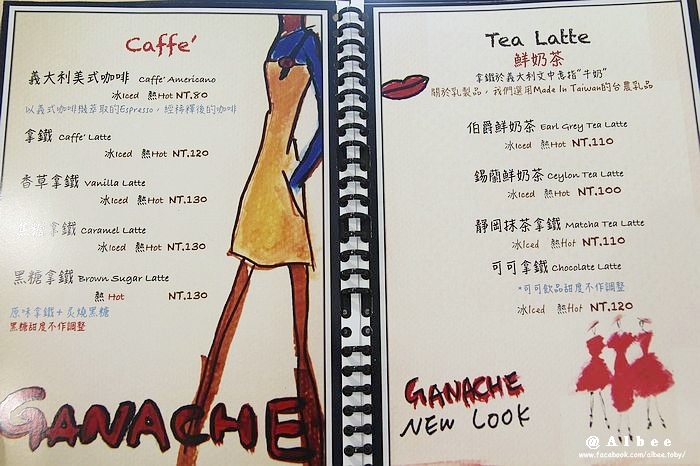 Caffe'
義大利美式咖啡 Caffe' Americano
冰Iced 熱Hot NT.80
以義式咖啡機萃取的Espresso，經稀釋後的咖啡
拿鐵 Caffe' Latte
冰Iced 熱Hot NT.120
香草拿鐵 Vanilla Latte
冰Iced 熱Hot NT.130
拿鐵 Caramel Latte
冰Iced 熱Hot NT.130
黑糖拿鐵 Brown Sugar Latte
熱 Hot NT.130
原味拿鐵＋炙燒黑糖
黑糖甜度不作調整
GANACHE
Tea Latte
鮮奶茶
拿鐵於義大利文中意指"牛奶"
關於乳製品，我們選用Made In Taiwan的台農乳品
伯爵鮮奶茶 Earl Grey Tea Latte
冰Iced 熱Hot NT.110
錫蘭鮮奶茶 Ceylon Tea Latte
冰Iced 熱Hot NT.100
靜岡抹茶拿鐵 Matcha Tea Latte
冰Iced 熱Hot NT.110
可可拿鐵 Chocolate Latte
*可可飲品甜度不作調整
冰Iced 熱Hot NT.120
GANACHE
NEW LOOK
@Albee
www.facebook.com/albee.toby/